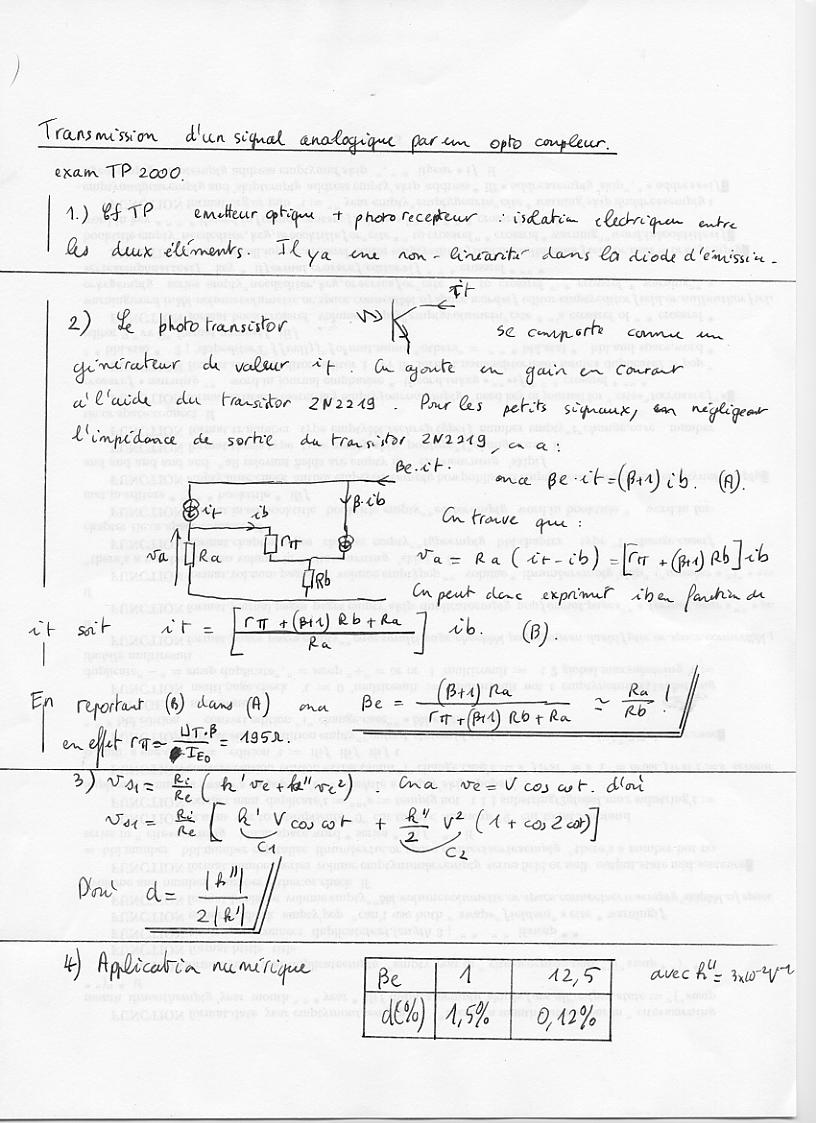 Transmission d'un signal analogique par un opto coupleur.
exam TP 2000.
1.) Cf TP emetteur optique + photorecepteur : isolation electrique entre
les deux éléments. Il y a une non-linearité dans la diode d'émission.
it
2) Le phototransistor se comporte comme un
générateur de valeur it. On ajoute un gain en courant
à l'aide du transistor 2N2219. Pour les petits signaux, en négligeant
l'impédance de sortie du transistor 2N2219, on a :
Be·it. on a βe·it=(β+1) ib. (A).
it ib β·ib On trouve que :
va Ra rπ va = Ra (it-ib) = [rπ + (β+1) Rb] ib
Rb On peut donc exprimer ib en fonction de
it soit it = [rπ + (β+1) Rb + Ra / Ra] ib. (B).
En reportant (B) dans (A) on a βe = (β+1) Ra / rπ + (β+1) Rb + Ra ≃ Ra / Rb !
en effet rπ = UT·β / IE0 = 195Ω.
3) vs1 = Ri/Re (k' ve + k'' ve²) On a ve = V cos ωt. d'où
vs1 = Ri/Re [k' V cos ωt + k''/2 V² (1 + cos 2ωt)]
C1 C2
D'où d = |k''| / 2|k'|
4) Application numérique βe 1 12,5 avec k'' = 3x10⁻²V⁻¹
d(%) 1,5% 0,12%